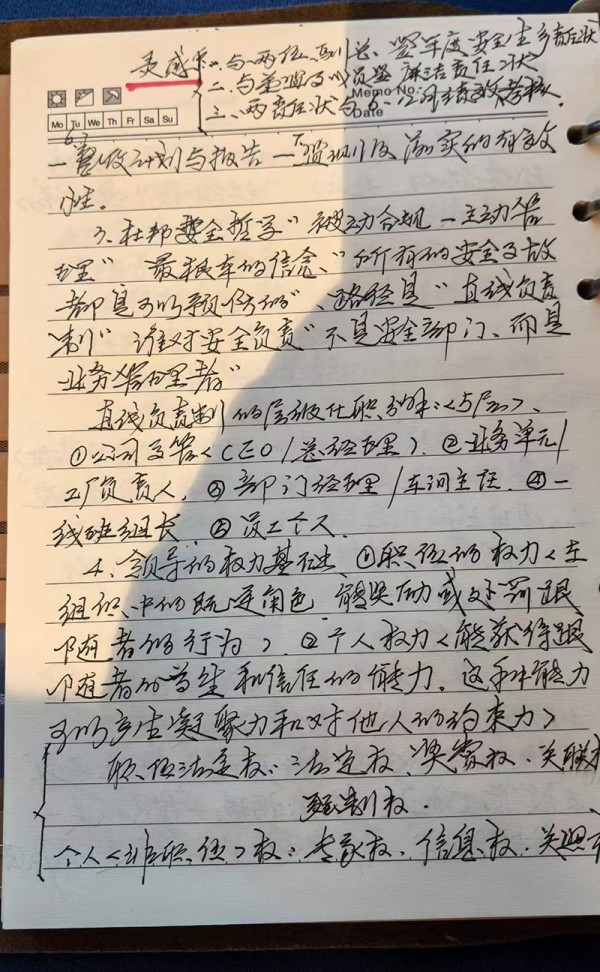 灵感
一、与两位副总签年度安全生产责任状
二、与管理及以员签廉洁责任状
三、两责任状与6-12月绩效考核.
Memo No:
Date
Mo Tu We Th Fr Sa Su
计划与报告 — 落实的有效
性。
3、杜邦安全哲学"被动合规—主动管
理" 最根本的信念、"所有的安全事故
都是可以预防的"、路径是"直线负责
制" "谁对安全负责"不是安全部门、而是
业务管理者"
直线负责制的层级任职分解:<5层>、
①公司高管<CEO/总经理>. ②业务单元/
工厂负责人, ③部门经理/车间主任. ④一
线班组长. ⑤员工个人.
4、领导的权力基础、①职位的权力<在
组织中的既定角色 能奖励或处罚跟
随者的行为>. ②个人权力<能获得跟
随者的尊重和信任的能力. 这种能力
可以产生凝聚力和对他人的约束力>
职位法定权: 法定权、奖赏权. 关联
强制权.
个人<非职位>权: 专家权. 信息权. 关照